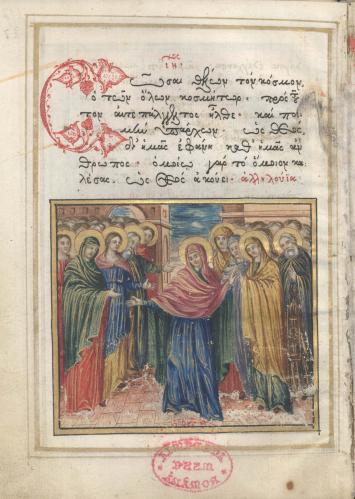 Σῶσαι θέλων τὸν κόσμον,
ὁ τῶν ὅλων κοσμήτωρ· πρὸς τοῦ
τον αὐτεπάγγελτος ἦλθε· καὶ ποι
μὴν ὑπάρχων, ὡς Θς,
δι' ἡμᾶς ἐφάνη καθ' ἡμᾶς ἄν
θρωπος· ὁμοίω γὰρ τὸ ὅμοιον κα
λέσας, ὡς Θς ἀκούει· ἀλληλούϊα